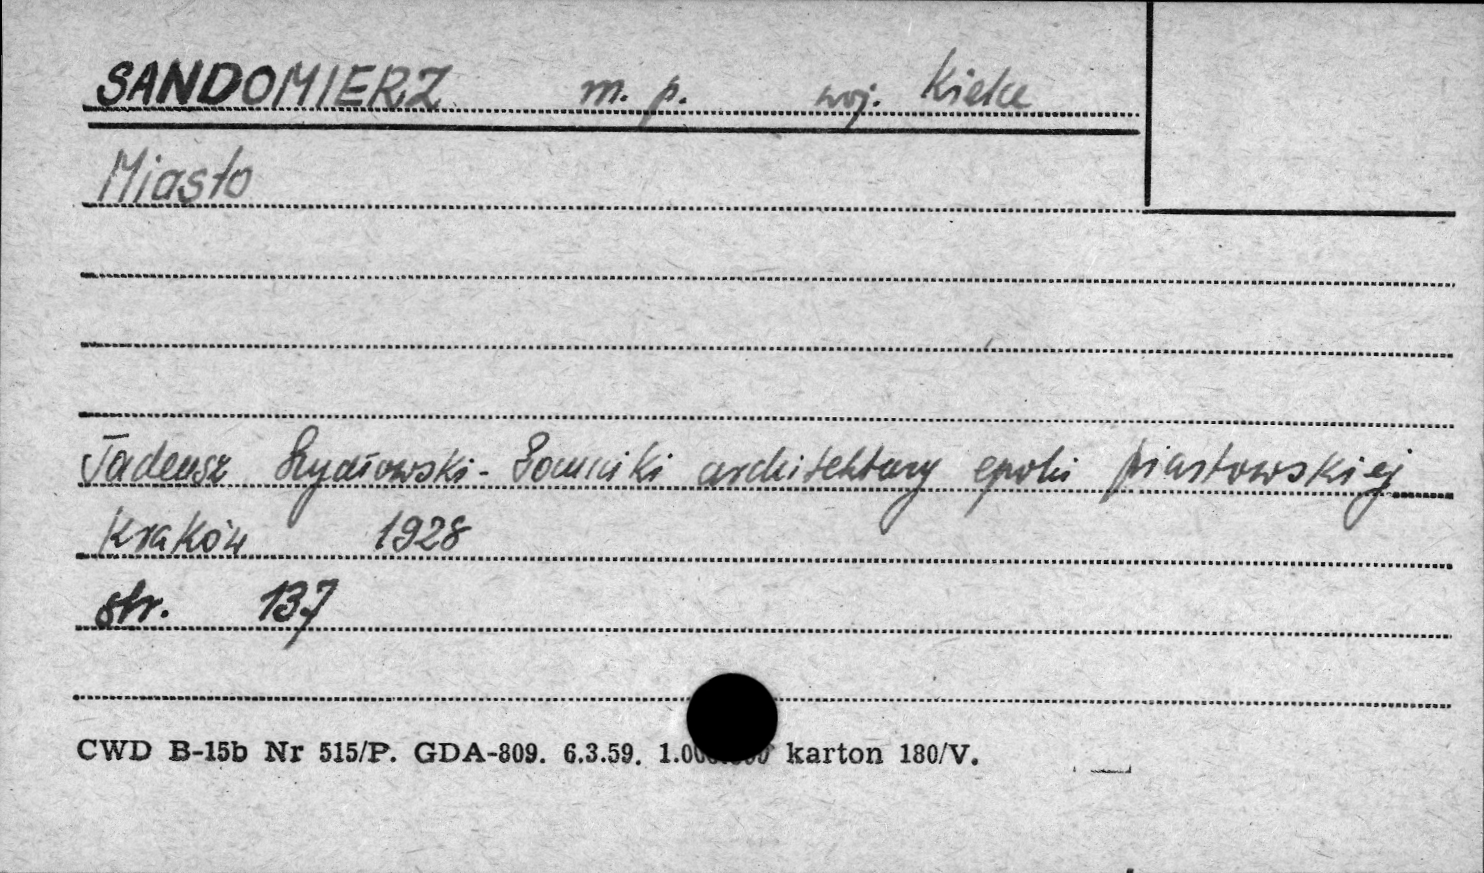 SANDOMIERZ m. p. woj. Kielce
Miasto
Tadeusz Szydłowski - Pomniki architektury epoki piastowskiej
Kraków 1928
str. 137
CWD B-15b Nr 515/P. GDA-809. 6.3.59. 1.000.000 karton 180/V.